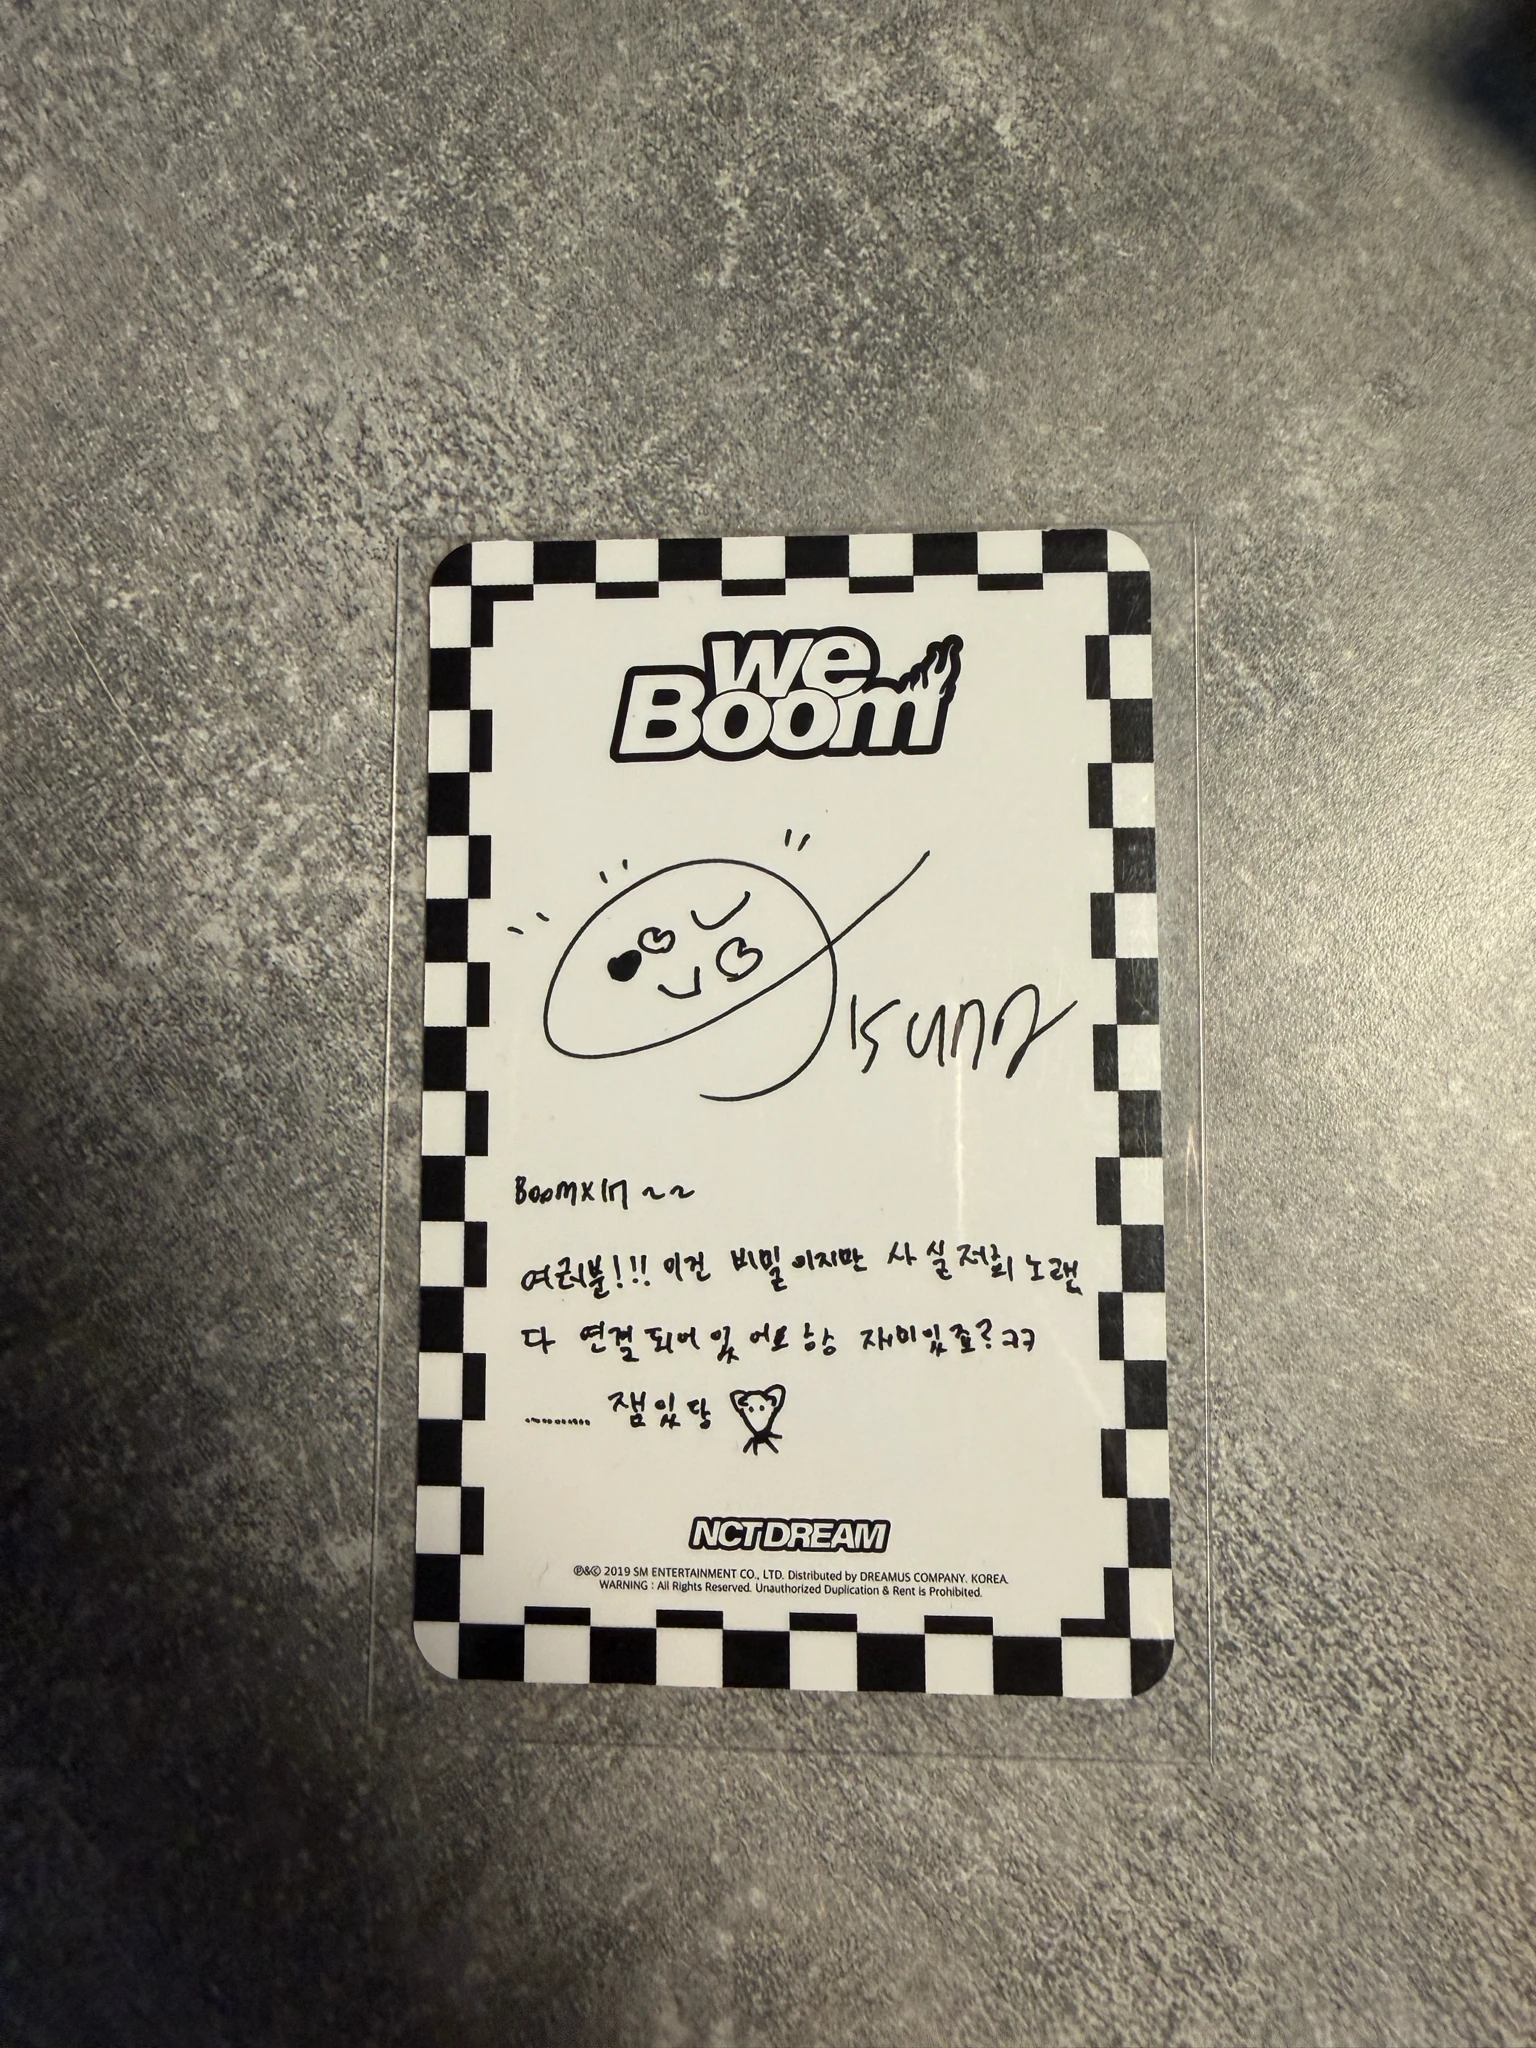 we
Boom
BoomXIn ~~
여러분!!! 이건 비밀이지만 사실 저희 노랜
다 연결되어 있어요 항상 재미있죠? ㅋㅋ
.......... 잼있당
NCT DREAM
℗&© 2019 SM ENTERTAINMENT CO., LTD. Distributed by DREAMUS COMPANY. KOREA.
WARNING : All Rights Reserved. Unauthorized Duplication & Rent is Prohibited.